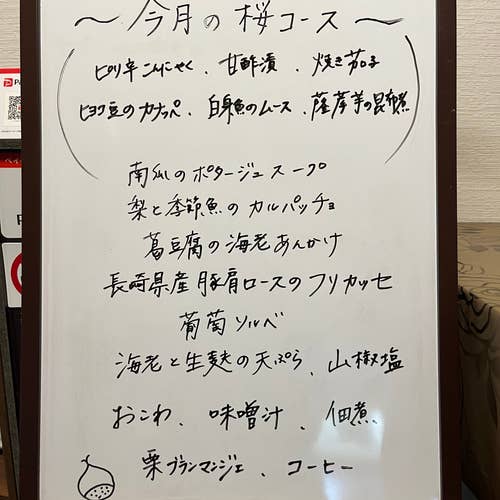 ～今月の桜コース～
ピリ辛こんにゃく、甘酢漬、焼き茄子
ヒヨコ豆のカナッペ、白身魚のムース、薩摩芋の昆布煮
南瓜のポタージュスープ
梨と季節魚のカルパッチョ
葛豆腐の海老あんかけ
長崎県産豚肩ロースのフリカッセ
葡萄ソルベ
海老と生麩の天ぷら、山椒塩
おこわ、味噌汁、佃煮
栗ブランマンジェ、コーヒー